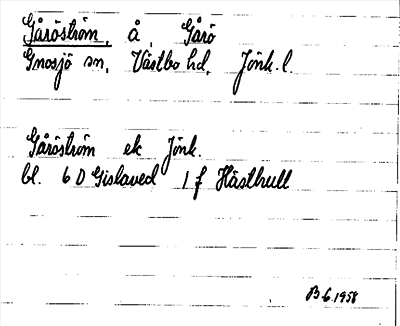 Gåröström, å, Gårö
Gnosjö sn, Västbo hd, Jönk. l.
Gåröström ek Jönk.
bl. 6 D Gislaved 1 f Hästhult
B-6.1958